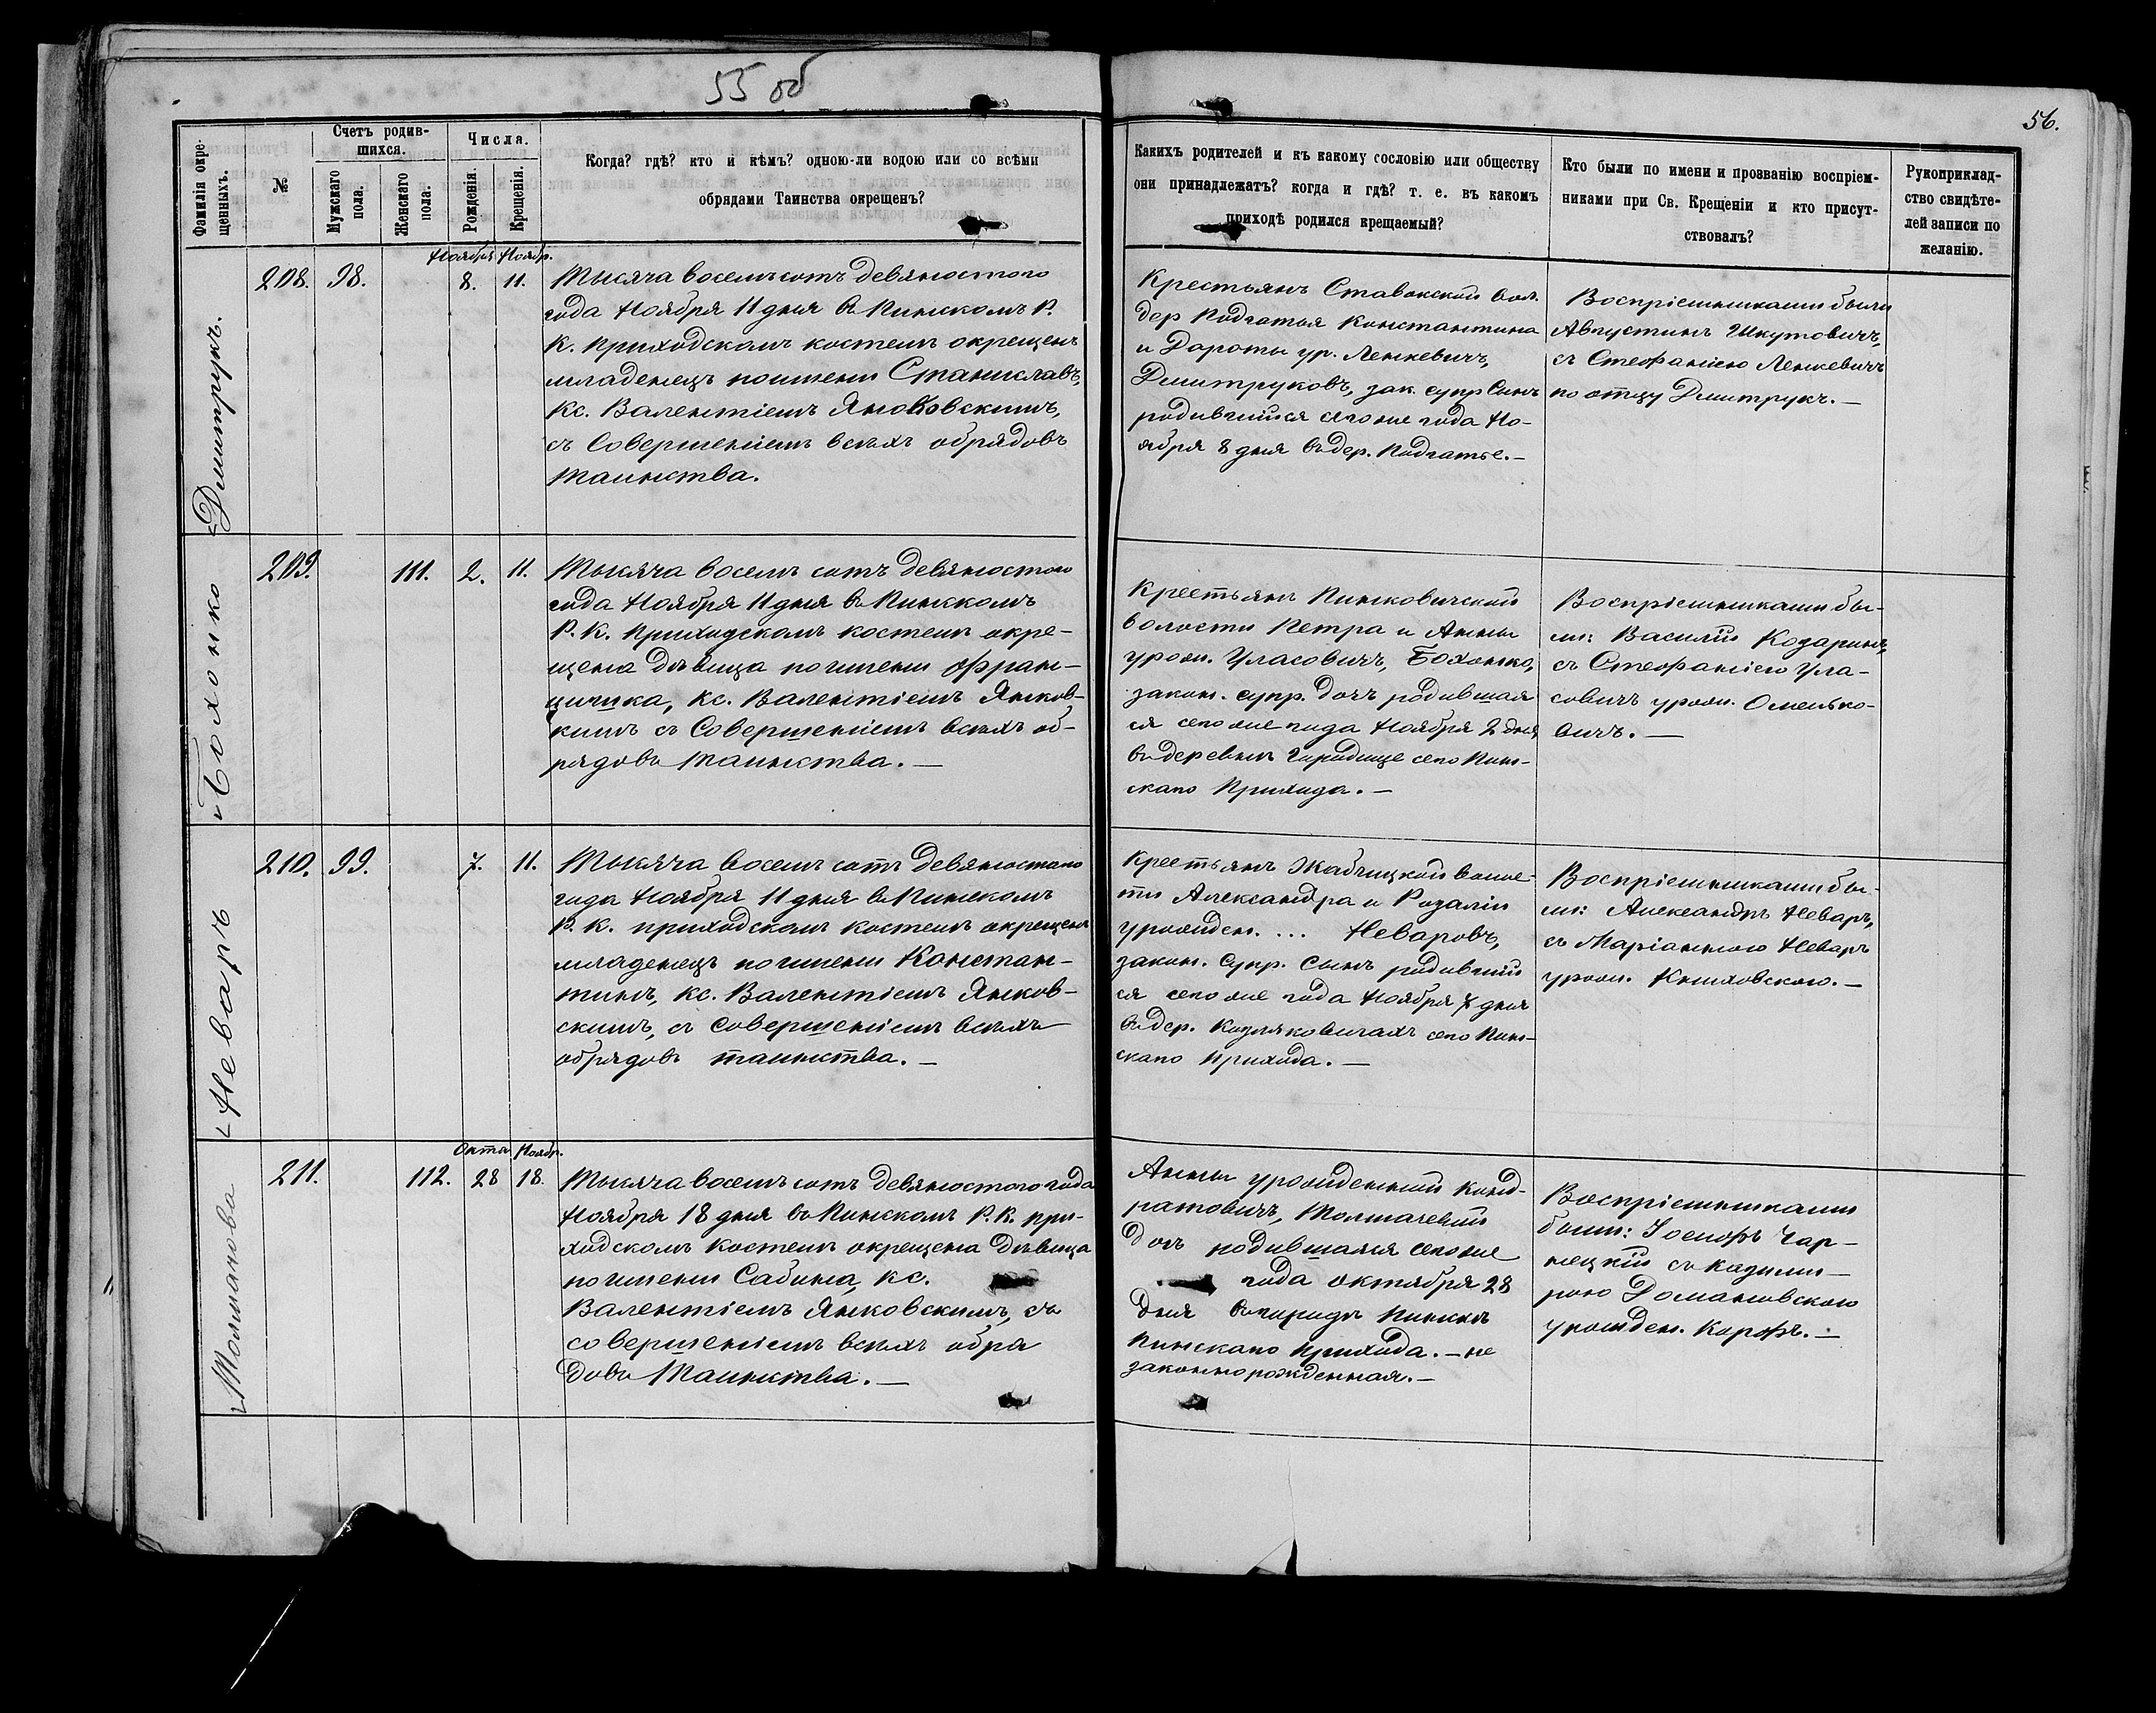 55 об
56.
Фамилія окре-
щенныхъ.
№
Счетъ родив-
шихся.
Мужскаго
пола.
Женскаго
пола.
Числа.
Рожденія.
Крещенія.
Когда? гдѣ? кто и кѣмъ? одною-ли водою или со всѣми
обрядами Таинства окрещенъ?
Какихъ родителей и къ какому сословію или обществу
они принадлежатъ? когда и гдѣ? т. е. въ какомъ
приходѣ родился крещаемый?
Кто были по имени и прозванію воспріем-
никами при Св. Крещеніи и кто присут-
ствовалъ?
Рукоприклад-
ство свидѣте-
лей записи по
желанію.
Дмитрукъ.
Ноября Ноябр.
208. 98. 8. 11.
Тысяча восемьсотъ девяностого
года Ноября 11 дня въ Пинскомъ Р.
К. приходскомъ костелѣ окрещенъ
младенецъ по имени Станиславъ,
Кс. Валентіемъ Янковскимъ,
съ Совершеніемъ всѣхъ обрядовъ
таинства.
Крестьянъ Ставокской вол.
дер Подгатья Константина
и Дороты ур. Ленкевичъ,
Дмитруковъ, зак. супр Сынъ
родившійся сего же года Но-
ября 8 дня въ дер. Подгатье.—
Воспріемниками были
Августинъ Шкутовичъ,
съ Стефаніею Ленкевичъ
по отцу Дмитрукъ.—
Бохонко
209. 111. 2. 11.
Тысяча восемь сотъ девяностого
года Ноября 11 дня въ Пинскомъ
Р. К. Приходскомъ костелѣ окре-
щена дѣвица по имени Фран-
цишка, Кс. Валентіемъ Янков-
кимъ съ Совершеніемъ всѣхъ об-
рядовъ Таинства.—
Крестьянъ Пинковичской
волости Петра и Анны
урож. Уласовичъ, Бохонко,
закон. супр. дочь родившая
ся сего же года Ноября 2 дня
въ деревнѣ Городище сего Пин-
скаго Прихода.—
Воспріемниками бы-
ли: Василій Козаринъ,
съ Стефаніею Ула-
совичъ урож. Оменько-
вичъ.—
Неваръ
210. 99. 7. 11.
Тысяча восемь сотъ девяностаго
года Ноября 11 дня въ Пинскомъ
Р. К. приходскомъ костелѣ окрещенъ
младенецъ по имени Констан-
тинъ, Кс. Валентіемъ Янков-
скимъ, съ совершеніемъ всѣхъ
обрядовъ таинства.—
Крестьянъ Жабчицкой волос-
ти Александра и Розаліи
урожден. ... Неваровъ,
закон. Супр. Сынъ родившій
ся сего же года Ноября 7 дня
въ дер. Козляковичахъ сего Пин-
скаго прихода.—
Воспріемниками бы-
ли: Александръ Неваръ,
съ Маріанною Неваръ
урож. Книховскою.—
Толмачева
Окто Ноябр.
211. 112. 28 18.
Тысяча восемь сотъ девяностого года
Ноября 18 дня въ Пинскомъ Р. К. при-
ходскомъ костелѣ окрещена дѣвица
по имени Сабина, Кс.
Валентіемъ Янковскимъ, съ
совершеніемъ всѣхъ обря
довъ Таинства.—
Анны урожденной Конд-
ратовичъ, Толмачевой
дочь родившаяся сего же
года октября 28
дня въ городѣ Пинскѣ
Пинскаго прихода.— не
законнорожденная.—
Воспріемниками
были: Іосифъ Чар-
нецкій съ Казими-
рою Домановскою
урожден. Корфъ.—